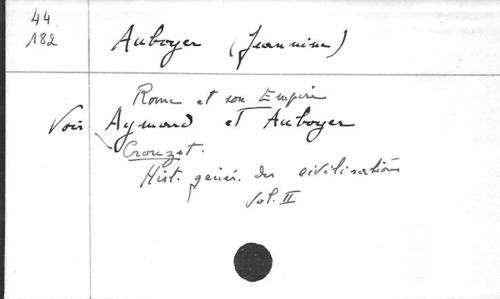 44
182
Auboyer (Jeannine)
Rome et son Empire
Voir Aymard et Auboyer
Crouzet.
Hist. génér. des civilisations
Vol. II